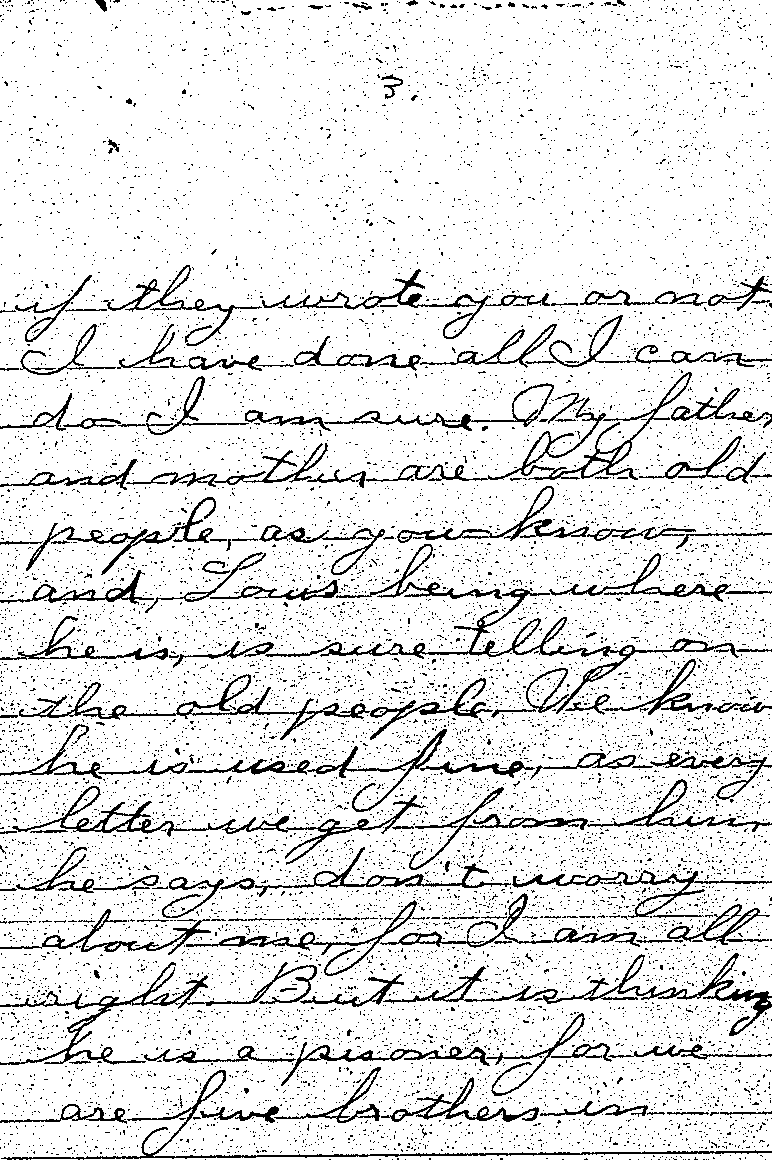 3.
if they wrote you or not
I have done all I can
do I am sure. My father,
and mother are both old
people, as you know,
and, Louis being where
he is, is sure telling on
the old people. We know
he is used fine, as every
letter we get from him,
he says, don't worry
about me, for I am all
right. But it is thinking
he is a pisoner, for we
are five brothers in